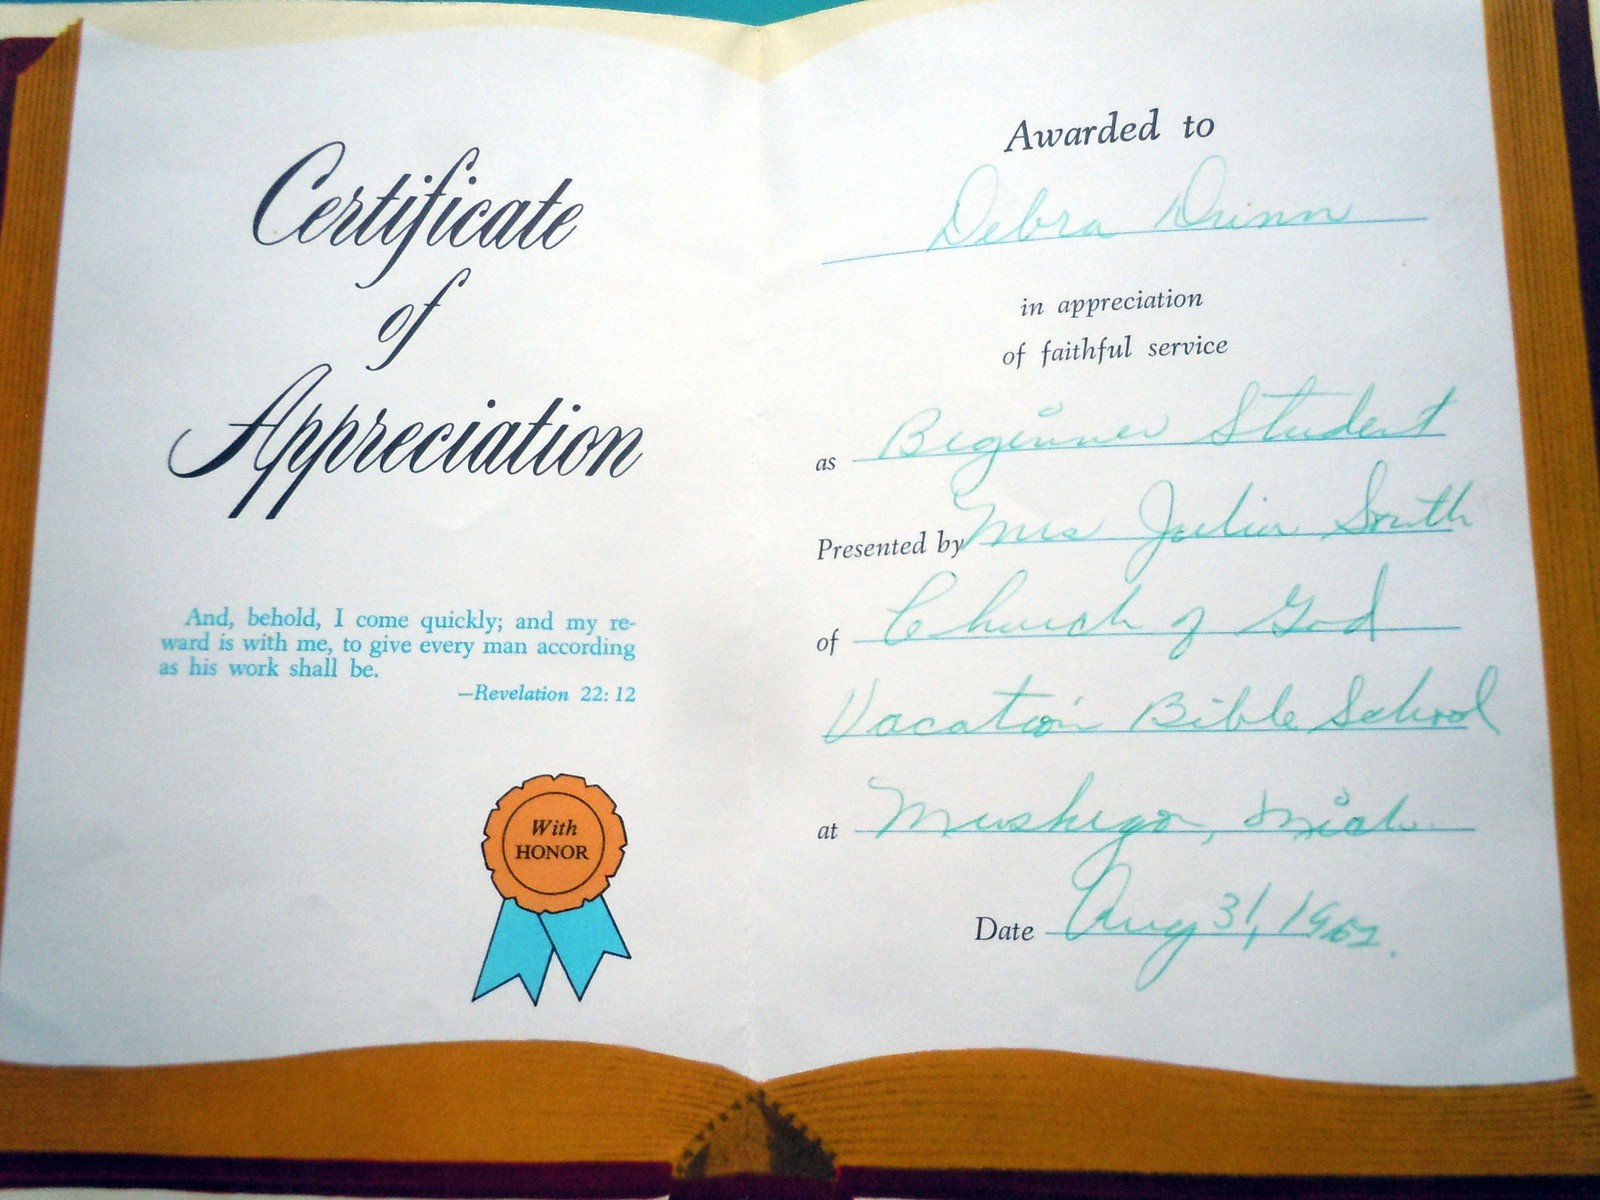 Certificate
of
Appreciation
And, behold, I come quickly; and my re-
ward is with me, to give every man according
as his work shall be.
—Revelation 22:12
With
HONOR
Awarded to
Debra Dunn
in appreciation
of faithful service
as Beginner Student
Presented by Mrs Julia South
of Church of God
Vacation Bible School
at Muskegon, Mich.
Date Aug 31, 1962.